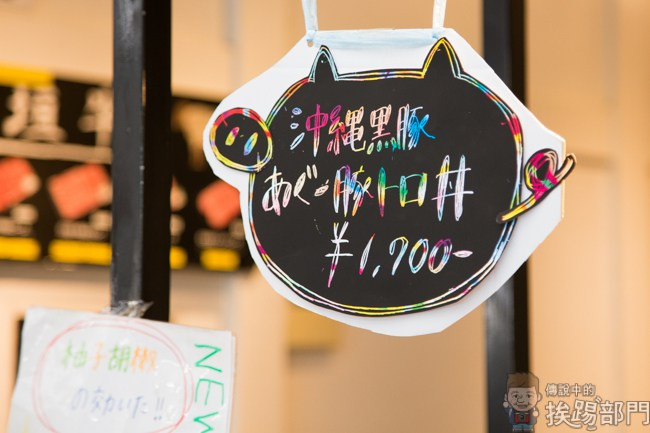 沖縄黒豚
あぐー豚トロ丼
¥1,700-
柚子胡椒
の効いた!!
NEW
傳說中的
挨踢部門